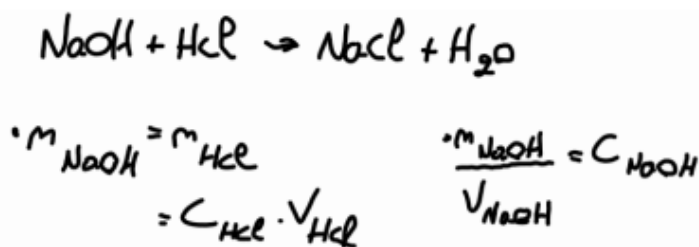 NaOH + HCl → NaCl + H₂O
· n NaOH = n HCl
= C HCl · V HCl
· n NaOH / V NaOH = C NaOH